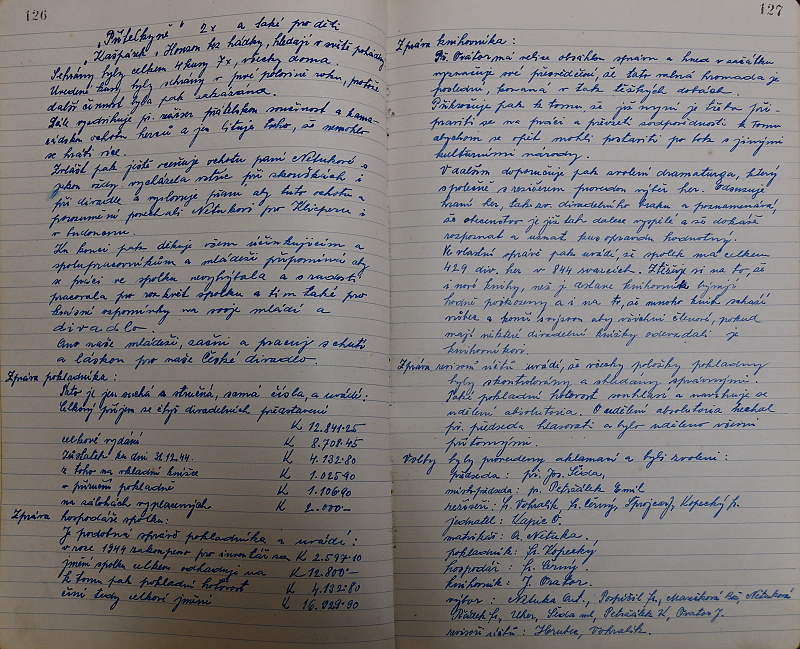 126
„Průtečkyně" 2x a také pro děti
Kašpárek, Honzom bez hádky, hledají v světě pohádky
Sehrány byly celkem 4 kusy 7x, všecky doma.
Uvedené kusy, byly sehrány v prvé polovině roku, protože
další činnost byla pak zakázána.
Dále vyzdvihuje př. režiser přátelskou součinnost a kama-
rádskou ochotu herců a jen lituje toho, že nemohlo
se hráti více.
Zvlášť pak jistě oceňuje ochotu paní Netukové s
jakou vždy vycházela vstříc při zkouškách i
při divadle a vyslovuje přání, aby tuto ochotu a
porozumění ponechali Netukovi pro Klicperu i
v budoucnu.
Ku konci pak děkuje všem účinkujícím a
spolupracovníkům a mládeži připomíná aby
se práci ve spolku nevyhýbala a s radostí
pracovala pro rozkvět spolku a tím také pro
krásné vzpomínky na svoje mládí a
divadlo.
Ano naše mládeži, začni a pracuj s chutí
a láskou pro naše České divadlo.
Zpráva pokladníka:
Tato je jen suchá a stručná, samá čísla, a uvádí:
Celkový příjem ze čtyř divadelních představení
K 12.841·25
celkové vydání K 8.708·45
Zůstatek ku dni 31.12.44. K 4.132·80
z toho na vkladní knížce K 1.025·90
v příruční pokladně K 1.106·90
na zálohách vyplacených K 2.000·—
Zpráva hospodáře spolku:
Je podobná zprávě pokladníka a uvádí:
v roce 1944 zakoupeno pro inventář za K 2.597·10
jmění spolku celkem odhaduje na K 12.800·—
k tomu pak pokladní hotovost K 4.132·80
činí tedy celkové jmění K 16.929·90
127
Zpráva knihovníka:
Př. Orátor, má velice obsáhlou zprávu a hned v začátku
vyznačuje své přesvědčení, že tato valná hromada je
poslední, konaná v tak těžkých dobách.
Pokračuje pak k tomu, že již nyní je třeba při-
praviti se na práci a převzíti zodpovědnost k tomu
abychom se opět mohli postaviti po bok s jinými
kulturními národy.
V dalším doporučuje pak zvolení dramaturga, který
společně s režisérem provedou výběr her. Odsuzuje
hraní her, tak zv. divadelního braku a poznamenává,
že obecenstvo je již tak dalece vyspělé a že dokáže
rozpoznat a uznat kus opravdu hodnotný.
Ve vlastní zprávě pak uvádí, že spolek má celkem
429 div. her v 844 svazcích. Stěžuje si na to, že
i nové knihy, než je dostane knihovník bývají
hodně poškozeny a i na to, že mnoho knih schází
vůbec a končí s výzvou aby všichni členové, pokud
mají některé divadelní knížky odevzdali je
knihovníkovi.
Zpráva revisorů účtů uvádí, že všecky položky pokladny
byly zkontrolovány a shledány správnými.
Také pokladní hotovost souhlasí a navrhuje se
udělení absolutoria. O udělení absolutoria nechal
př. předseda hlasovati a bylo uděleno všemi
přítomnými.
Volby byly provedeny aklamací a byli zvoleni:
předseda: př. Jos. Šeda,
místopředseda: př. Petráček Emil
režiséři: Fr. Vohralík, Fr. Černý, Kopecký fr.
jednatel: Kapic O.
matrikář: A. Netuka.,
pokladník: Fr. Kopecký
hospodář: Fr. Černý.
knihovník: J. Orator.
výbor: Netuka Ant., Pospíšil Fr., Netuková
Fr., Uher, Šeda ml., Petráček K., Orator J.
revisoři účtů: Hrubec, Vohralík.